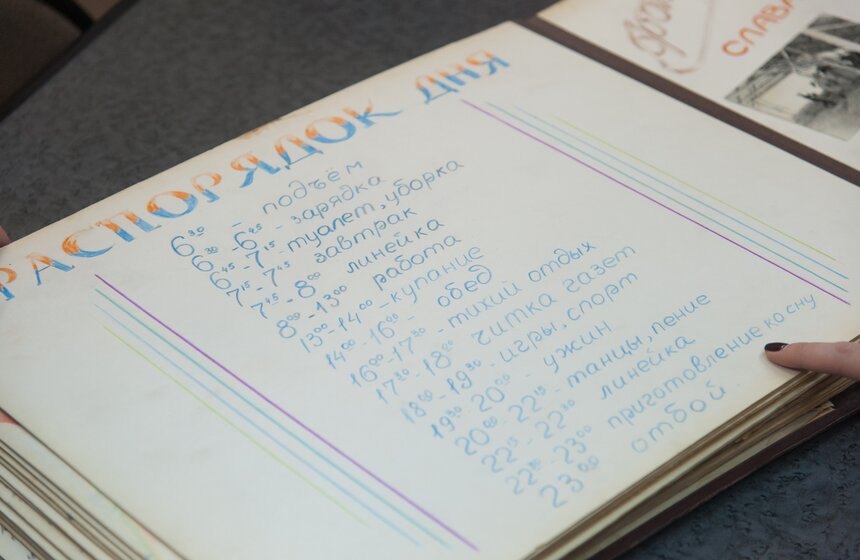 РАСПОРЯДОК ДНЯ
6³⁰ - подъём
6³⁰ - 6⁴⁵ - зарядка
6⁴⁵ - 7¹⁵ - туалет, уборка
7¹⁵ - 7⁴⁵ завтрак
7⁴⁵ - 8⁰⁰ линейка
8⁰⁰ - 13⁰⁰ работа
13⁰⁰ - 14⁰⁰ - купание
14⁰⁰ - 16⁰⁰ - обед
16⁰⁰ - 17³⁰ - тихий отдых
17³⁰ - 18⁰⁰ читка газет
18⁰⁰ - 19³⁰ - игры, спорт
19³⁰ - 20⁰⁰ ужин
20⁰⁰ - 22¹⁵ - танцы, пение
22¹⁵ - 22³⁰ линейка
22³⁰ - 23⁰⁰ приготовление ко сну
23⁰⁰ отбой
СЛАВА